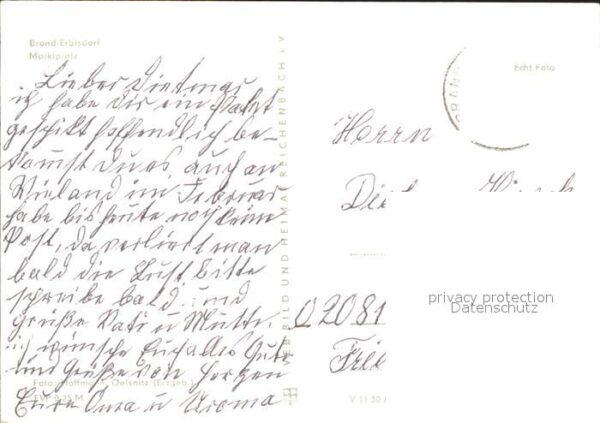 Brand-Erbisdorf
Marktplatz
Lieber Dietmar
ich habe dir ein Paket
geschikt hoffendlich be-
komst du es, auch an
Wieland im Februar
habe bis heute noch kein
Post, da verliert man
bald die Lust bitte
schreibe bald. und
grüße Vati u Mutti.
ich wünsche Euch alles Gute
und Grüße von Herzen
Eure Oma u Uroma
Foto: Hoffmann, Oelsnitz (Erzgeb.)
EVP 0,25 M
BILD UND HEIMAT REICHENBACH i. V.
BRAND
Echt Foto
Herrn
02081
V 11 30
privacy protection
Datenschutz